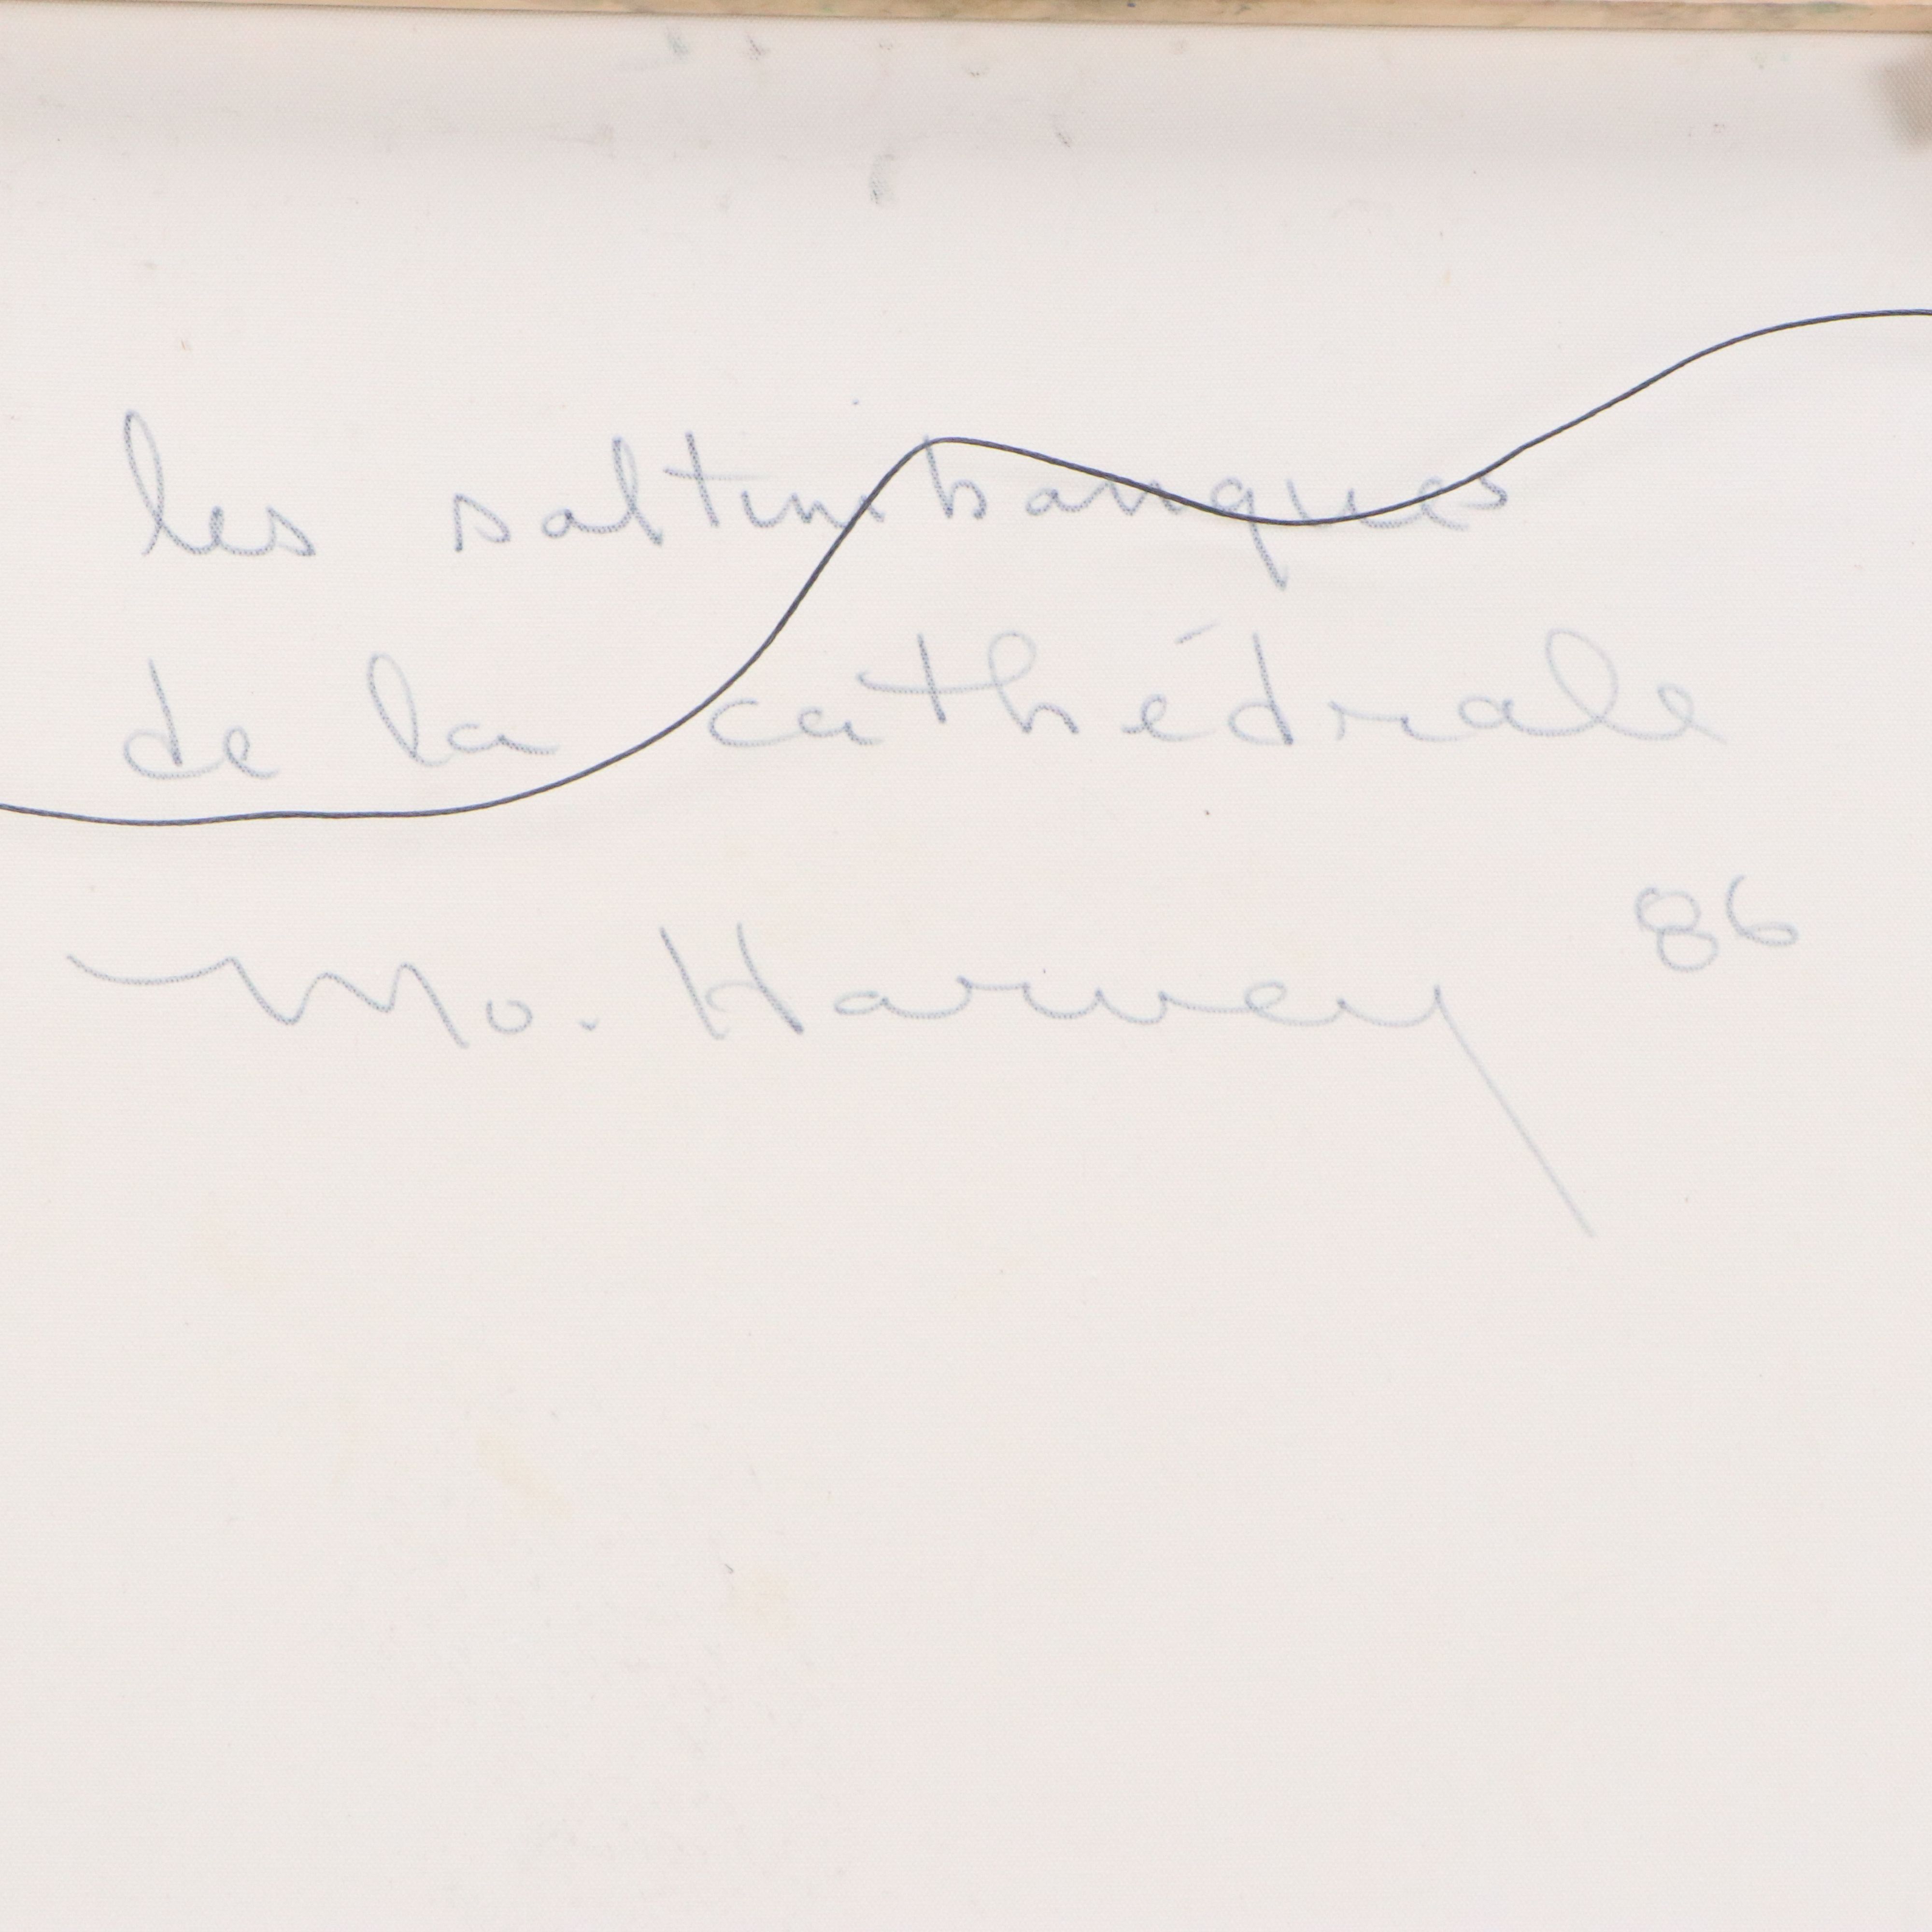 les saltimbanques
de la cathédrale
Mo. Harvey 86